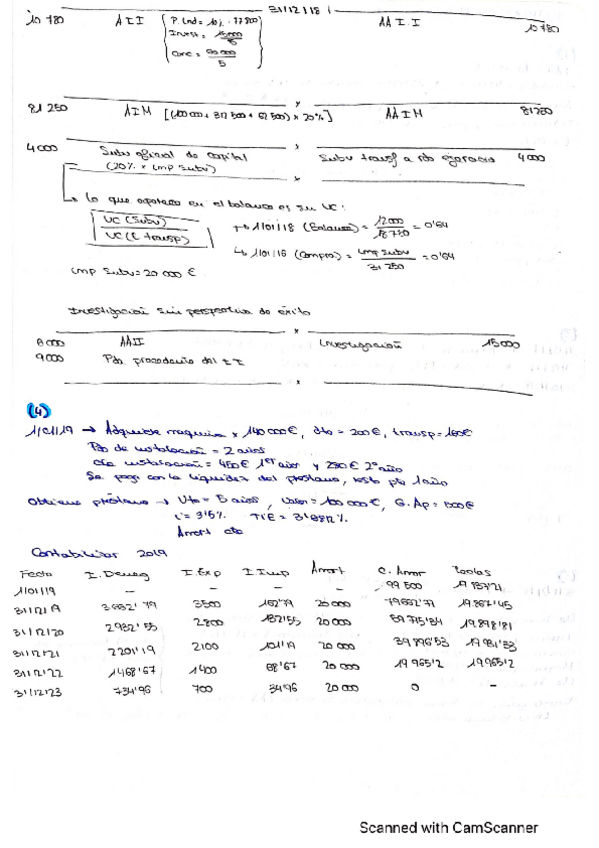 31/12/18
10 780 AII { P. Ind = 10 j. · 77 800 AA I.I 10 780
Invest = 15000/5
Conc = 90000/5
81 250 AIM [(100 000 + 312 500 + 62 500) × 20%] AAIM 81250
4000 Subv oficial de capital Subv transf a rdo ejercicio 4000
(20% × Imp Subv)
Lo que aparece en el balance es su VC:
VC (Subv) → 1/01/18 (Balance) = 12000/18 750 = 0'64
VC (E transp) ↳ 1/01/16 (Compra) = Imp Subv/31 250 = 0'64
Imp Subv = 20 000 €
Investigación sin perspectiva de éxito
6000 AAII Investigación 15000
9000 Pda procedente del II
(4)
1/01/19 → Adquiere maquina x 140 000€, dto = 200€, transp = 160€
Pdo de instalación = 2 años
Cte instalación = 450€ 1er año y 230€ 2º año
Se paga con la liquidez del préstamo, resto pte 1 año
Obtiene préstamo → Vto = 5 años, Valor = 100 000€, G. Ap = 500€
i = 3'5% TIE = 3'6812%
Amort cte
Contabilizar 2019
Fecha I. Deveng I. Exp I. Imp Amort C. Amor
1/01/19 – – – – 99 500 19 837'21
31/12/19 3 662'79 3500 162'79 20 000 79 662'79 19 867'45
31/12/20 2 932'55 2800 132'55 20 000 59 715'34 19 898'81
31/12/21 2 201'19 2100 101'19 20 000 39 896'53 19 931'33
31/12/22 1 468'67 1400 68'67 20 000 19 965'2 19 965'2
31/12/23 734'96 700 34'96 20 000 0 –
Scanned with CamScanner